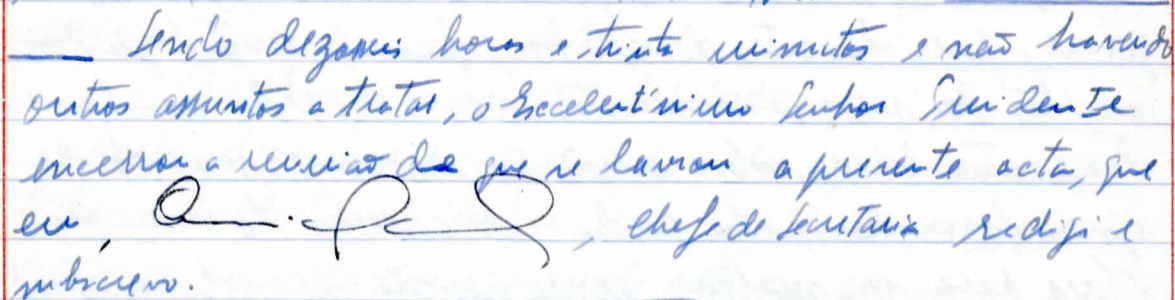 Sendo dezasseis horas e trinta minutos e não havendo
outros assuntos a tratar, o Excelentíssimo Senhor Presidente
encerrou a reunião da que se lavrou a presente acta, que
eu, , Chefe de Secretaria redigi e
subscrevo.